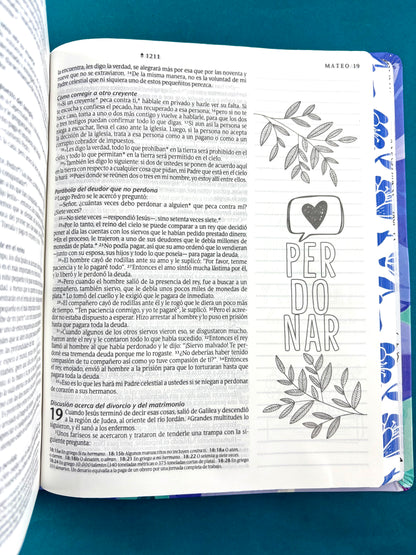 1211
MATEO 19
la encuentra, les digo la verdad, se alegrará más por esa que por las noventa y
nueve que no se extraviaron. 14De la misma manera, no es la voluntad de mi
Padre celestial que ni siquiera uno de estos pequeñitos perezca.
Cómo corregir a otro creyente
15»Si un creyente* peca contra ti,* háblale en privado y hazle ver su falta. Si
te escucha y confiesa el pecado, has recuperado a esa persona; 16pero si no te
hace caso, toma a uno o dos más contigo y vuelve a hablarle, para que los dos
o tres testigos puedan confirmar todo lo que digas. 17Si aun así la persona se
niega a escuchar, lleva el caso ante la iglesia. Luego, si la persona no acepta
la decisión de la iglesia, trata a esa persona como a un pagano o como a un
corrupto cobrador de impuestos.
18»Les digo la verdad, todo lo que prohíban* en la tierra será prohibido en el
cielo, y todo lo que permitan* en la tierra será permitido en el cielo.
19»También les digo lo siguiente: si dos de ustedes se ponen de acuerdo aquí
en la tierra con respecto a cualquier cosa que pidan, mi Padre que está en el cielo
la hará. 20Pues donde se reúnen dos o tres en mi nombre, yo estoy allí entre ellos.
Parábola del deudor que no perdona
21Luego Pedro se le acercó y preguntó:
—Señor, ¿cuántas veces debo perdonar a alguien* que peca contra mí?
¿Siete veces?
22—No siete veces —respondió Jesús—, sino setenta veces siete.*
23»Por lo tanto, el reino del cielo se puede comparar a un rey que decidió
poner al día las cuentas con los siervos que le habían pedido prestado dinero.
24En el proceso, le trajeron a uno de sus deudores que le debía millones de
monedas de plata.* 25No podía pagar, así que su amo ordenó que lo vendieran
—junto con su esposa, sus hijos y todo lo que poseía— para pagar la deuda.
26»El hombre cayó de rodillas ante su amo y le suplicó: "Por favor, tenme
paciencia y te lo pagaré todo". 27Entonces el amo sintió mucha lástima por él,
lo liberó y le perdonó la deuda.
28»Pero cuando el hombre salió de la presencia del rey, fue a buscar a un
compañero, también siervo, que le debía unos pocos miles de monedas de
plata.* Lo tomó del cuello y le exigió que le pagara de inmediato.
29»El compañero cayó de rodillas ante él y le rogó que le diera un poco más
de tiempo. "Ten paciencia conmigo, y yo te pagaré", le suplicó. 30Pero el acree-
dor no estaba dispuesto a esperar. Hizo arrestar al hombre y lo puso en prisión
hasta que pagara toda la deuda.
31»Cuando algunos de los otros siervos vieron eso, se disgustaron mucho.
Fueron ante el rey y le contaron todo lo que había sucedido. 32Entonces el rey
llamó al hombre al que había perdonado y le dijo: "¡Siervo malvado! Te per-
doné esa tremenda deuda porque me lo rogaste. 33¿No deberías haber tenido
compasión de tu compañero así como yo tuve compasión de ti?". 34Entonces el
rey, enojado, envió al hombre a la prisión para que lo torturaran hasta que
pagara toda la deuda.
35»Eso es lo que les hará mi Padre celestial a ustedes si se niegan a perdonar
de corazón a sus hermanos.
Discusión acerca del divorcio y del matrimonio
19 Cuando Jesús terminó de decir esas cosas, salió de Galilea y descendió
a la región de Judea, al oriente del río Jordán. 2Grandes multitudes lo
siguieron, y él sanó a los enfermos.
3Unos fariseos se acercaron y trataron de tenderle una trampa con la si-
guiente pregunta:
18:15a En griego Si tu hermano. 18:15b Algunos manuscritos no incluyen contra ti. 18:18a O aten.
PER
DO
NAR